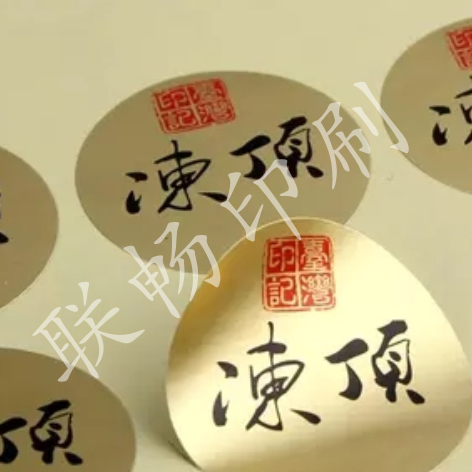 臺灣印記
凍頂
臺灣印記
凍頂
頂
联畅印刷